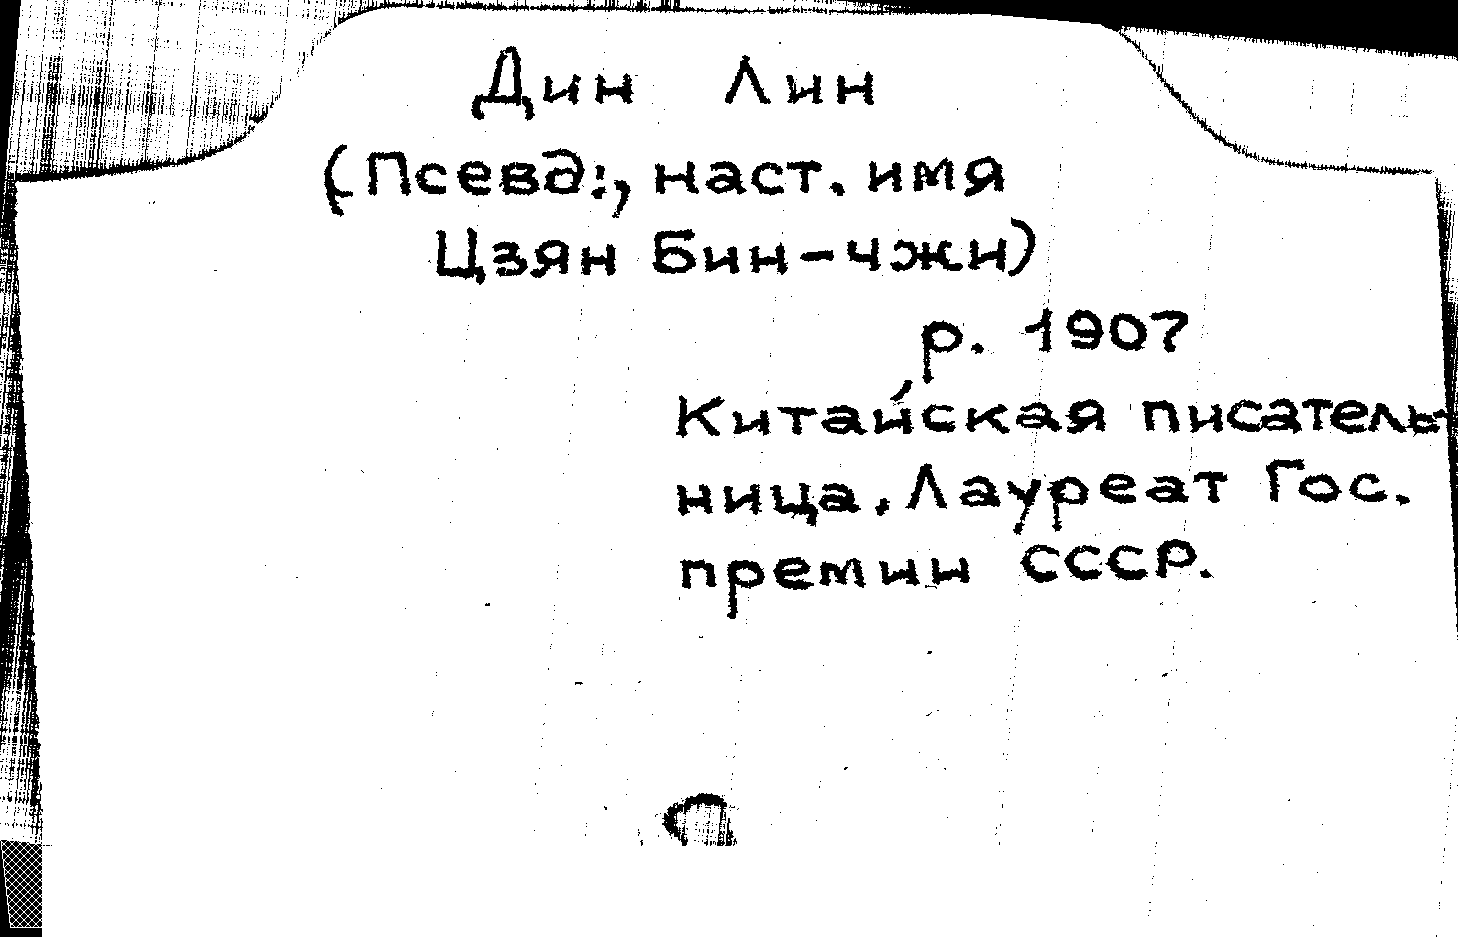 Дин Лин
(Псевд:, наст. имя
Цзян Бин-чжи)
р. 1907
Китайская писатель-
ница. Лауреат Гос.
премии СССР.